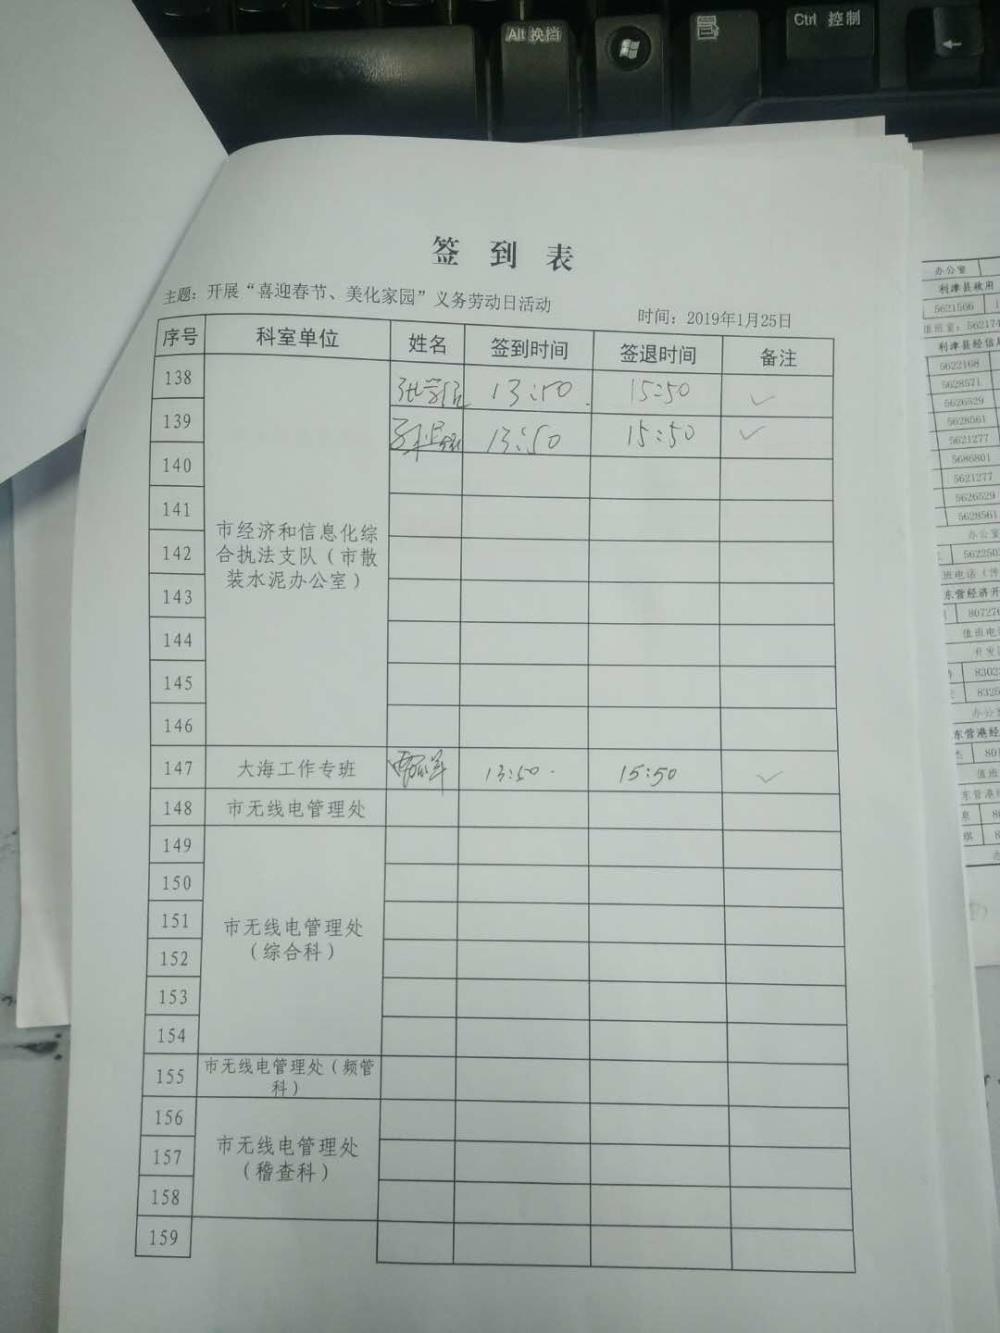 Alt 换档
Ctrl 控制
签 到 表
主题：开展“喜迎春节、美化家园”义务劳动日活动
时间：2019年1月25日
序号 科室单位 姓名 签到时间 签退时间 备注
138 13:50 15:50 ✓
139 13:50 15:50 ✓
140
141
市经济和信息化综
142 合执法支队（市散
装水泥办公室）
143
144
145
146
147 大海工作专班 13:50 15:50 ✓
148 市无线电管理处
149
150
151 市无线电管理处
152 （综合科）
153
154
155 市无线电管理处（频管
科）
156
157 市无线电管理处
（稽查科）
158
159
办公室
利津县政府
5621566
值班室：562174
利津县经信局
5622168
5628571
5626529
5628561
5621277
5686801
5621277
5626529
5628561
办公室
562250
班电话（传
东营经济开
80727
值班电
开发区
8302
832
办公
东营港经
值班
东营港